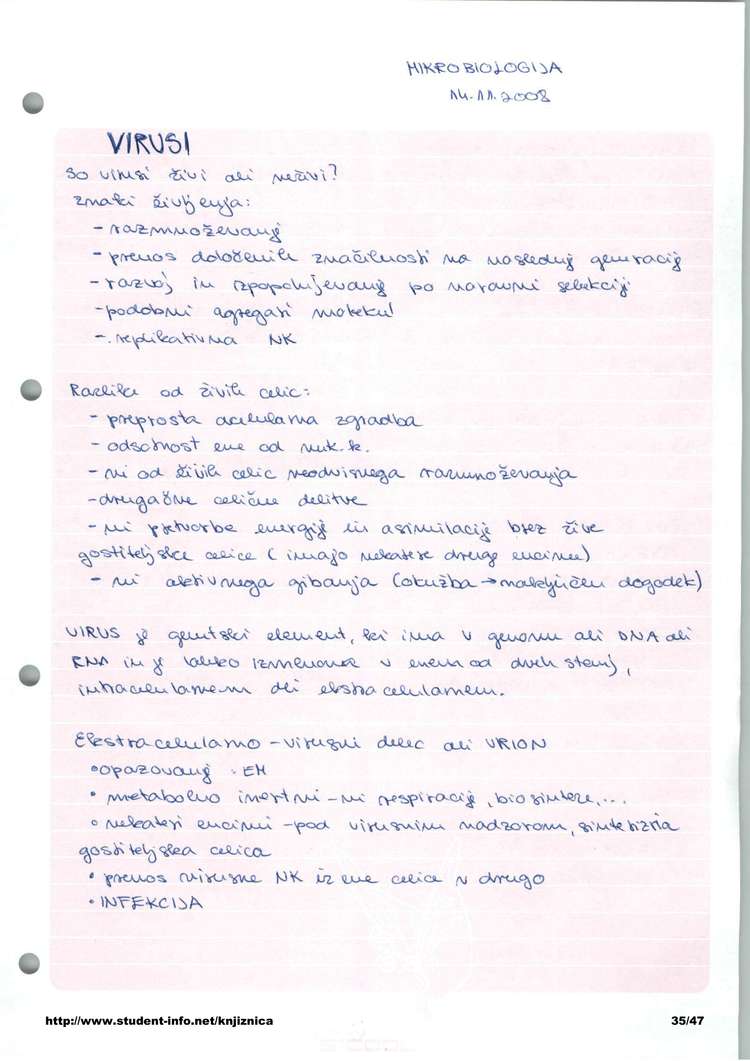 MIKROBIOLOGIJA
14.11.2008
VIRUSI
So virusi živi ali neživi?
Znaki življenja:
- razmnoževanje
- prenos določenih značilnosti na naslednje generacije
- razvoj in izpopolnjevanje po naravni selekciji
- podobni agregati molekul
- replikativna NK
Razlike od živih celic:
- preprosta acelularna zgradba
- odsotnost ene od nuk.k.
- ni od živih celic neodvisnega razmnoževanja
- drugačne celične delitve
- ni pretvorbe energije in asimilacije brez žive
gostiteljske celice (imajo nekatere druge encime)
- ni aktivnega gibanja (okužba → naključen dogodek)
VIRUS je genetski element, ki ima v genomu ali DNA ali
RNA in je lahko izmenoma v enem od dveh stanj,
intracelularnem ali ekstracelularnem.
Ekstracelularno - virusni delec ali VIRION
• opazovanje : EM
• metabolno inertni - ni respiracije, biosinteze,...
• nekateri encimi - pod virusnim nadzorom, sintetizira
gostiteljska celica
• prenos virusne NK iz ene celice v drugo
• INFEKCIJA
http://www.student-info.net/knjiznica
35/47